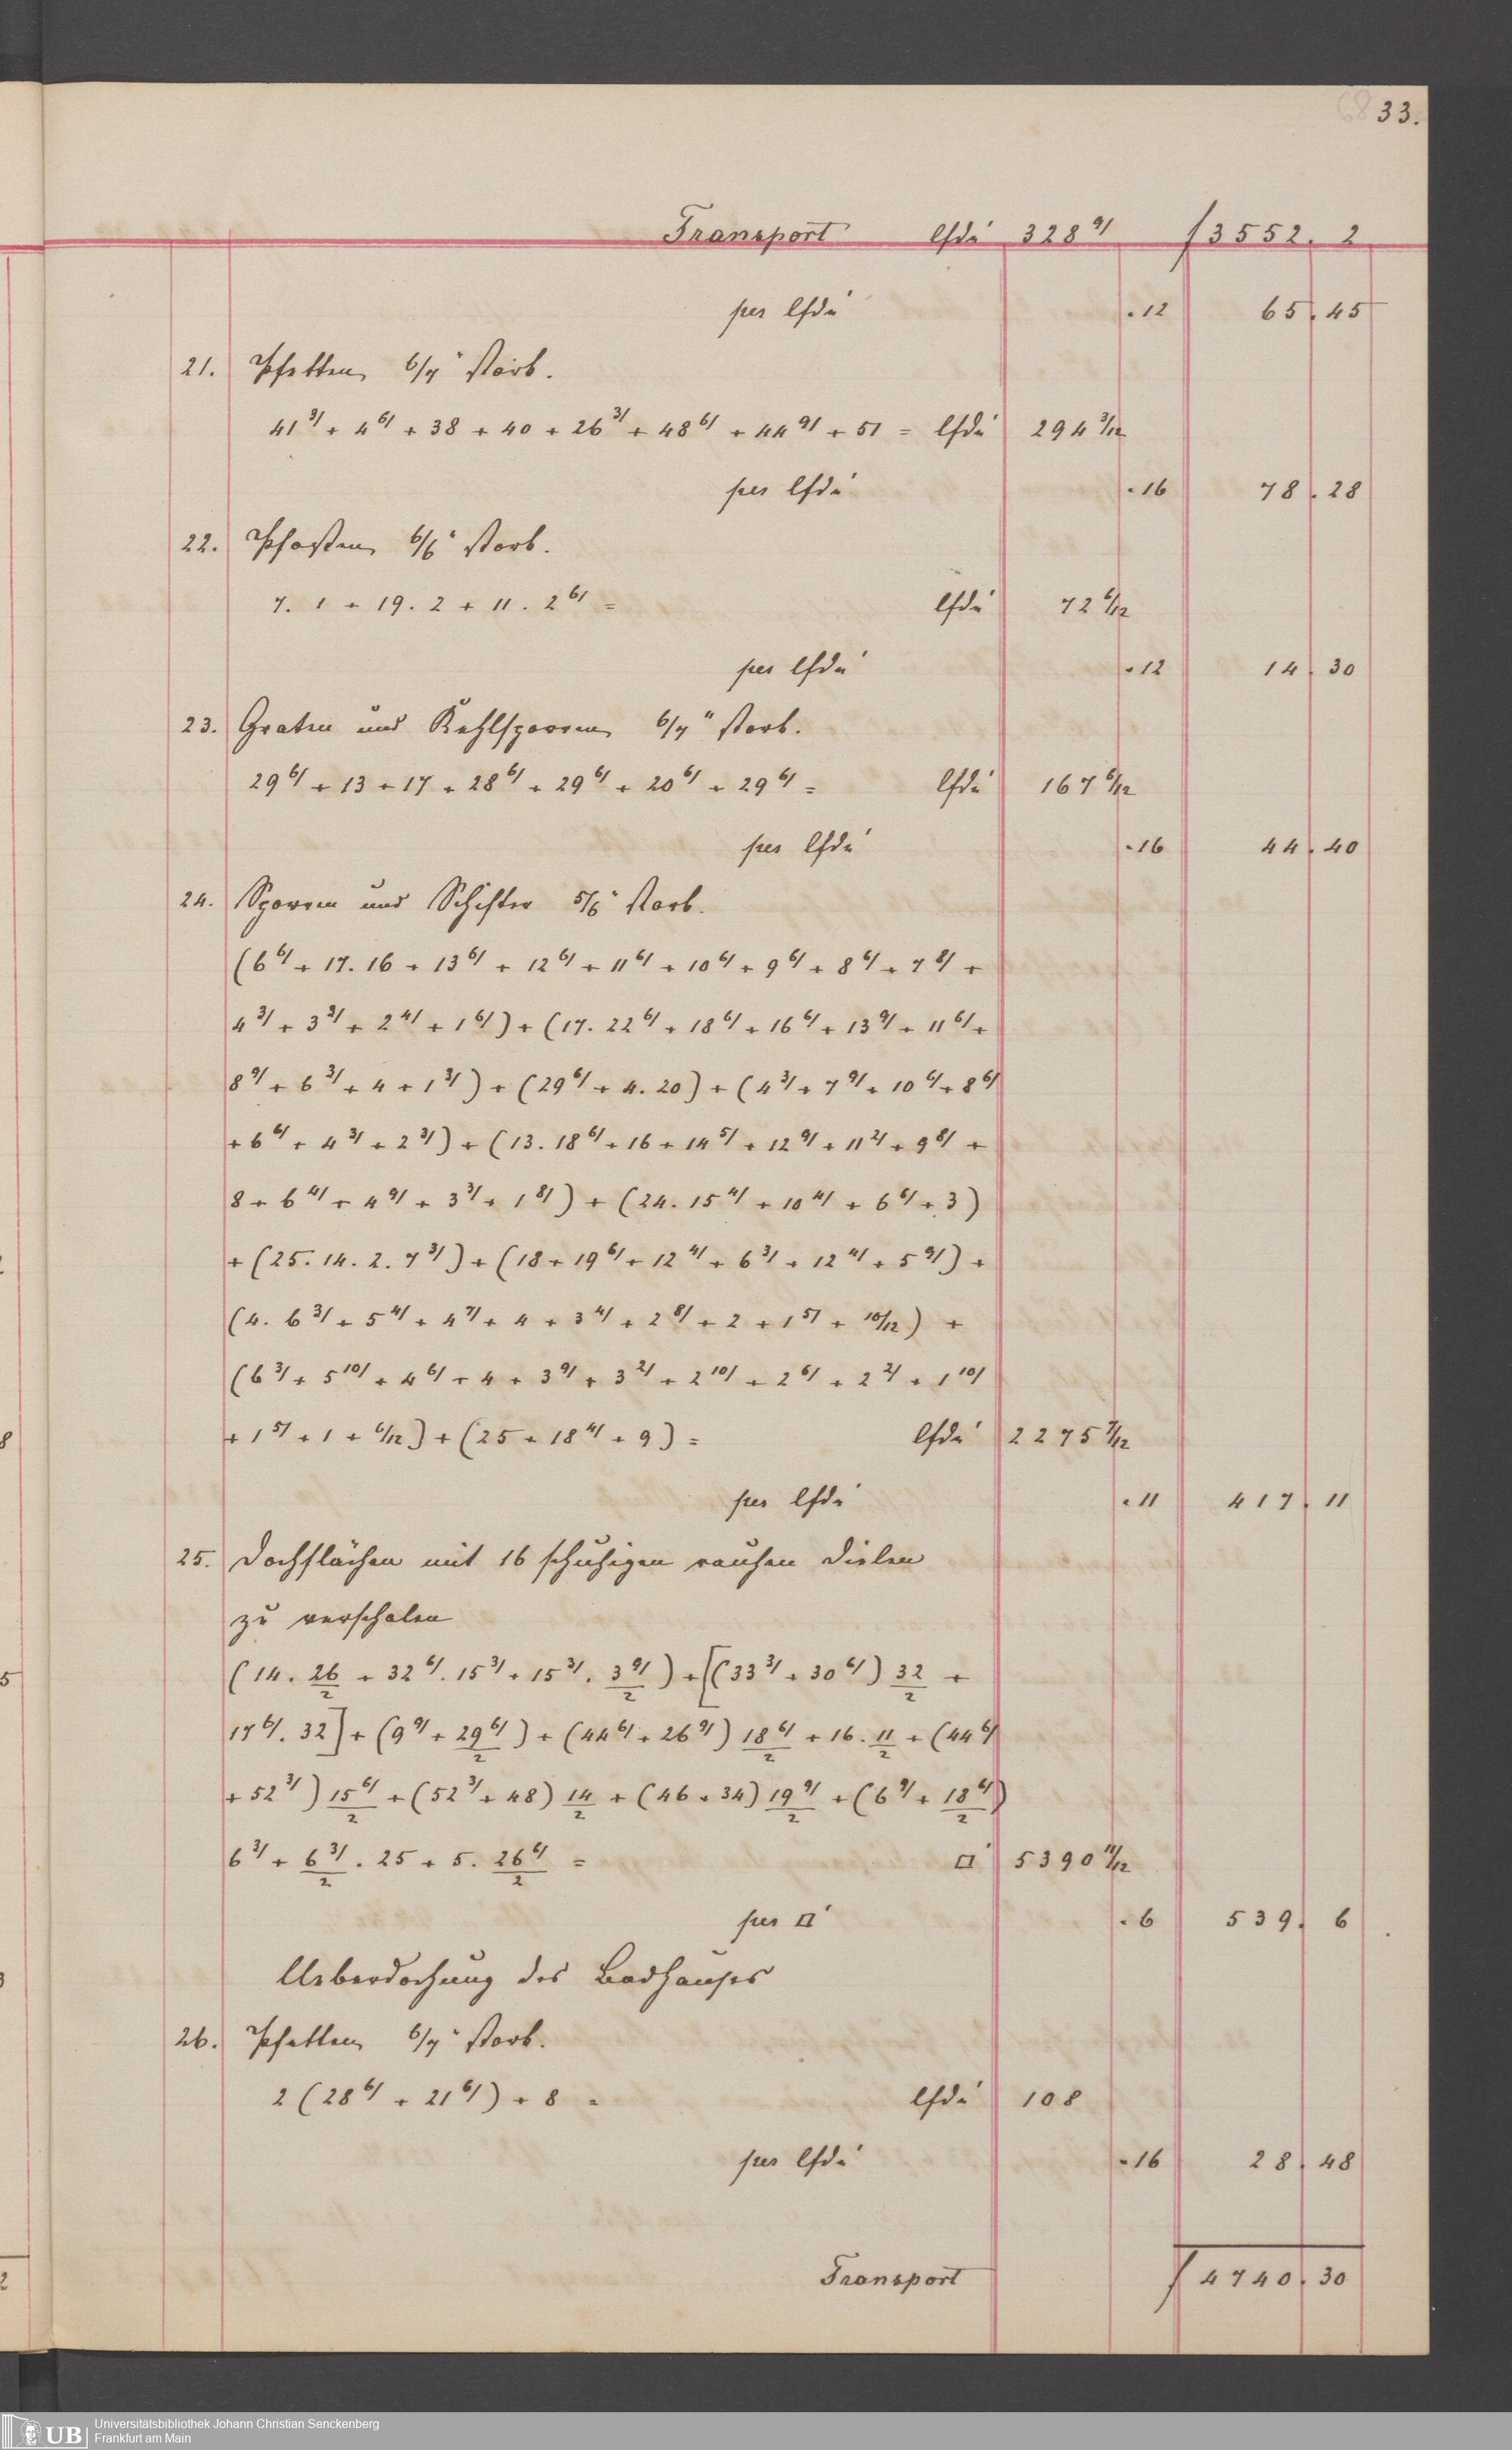 33.
Transport lfd' 328 9/ f 3552. 2
per lfd' . 12 65. 45
21. Pfetten 6/7" stark.
41 3/ + 4 6/ + 38 + 40 + 26 3/ + 48 6/ + 44 9/ + 51 = lfd' 294 3/12
per lfd' . 16 78. 28
22. Pfosten 6/6" stark.
7. 1 + 19. 2 + 11. 2 6/ = lfd' 72 6/12
per lfd' . 12 14. 30
23. Graten und Kehlsparren 6/7" stark.
29 6/ + 13 + 17 + 28 6/ + 29 6/ + 20 6/ + 29 6/ = lfd' 167 6/12
per lfd' . 16 44. 40
24. Sparren und Schifter 5/6" stark.
(6 6/ + 17. 16 + 13 6/ + 12 6/ + 11 6/ + 10 6/ + 9 6/ + 8 6/ + 7 8/ +
4 3/ + 3 3/ + 2 4/ + 1 6/) + (17. 22 6/ + 18 6/ + 16 6/ + 13 9/ + 11 6/ +
8 9/ + 6 3/ + 4 + 1 3/) + (29 6/ + 4. 20) + (4 3/ + 7 9/ + 10 6/ + 8 6/
+ 6 6/ + 4 3/ + 2 3/) + (13. 18 6/ + 16 + 14 5/ + 12 9/ + 11 2/ + 9 8/ +
8 + 6 4/ + 4 9/ + 3 3/ + 1 8/) + (24. 15 4/ + 10 4/ + 6 6/ + 3)
+ (25. 14. 2. 7 3/) + (18 + 19 6/ + 12 4/ + 6 3/ + 12 4/ + 5 9/) +
(4. 6 3/ + 5 4/ + 4 7/ + 4 + 3 4/ + 2 8/ + 2 + 1 5/ + 10/12) +
(6 3/ + 5 10/ + 4 6/ + 4 + 3 9/ + 3 2/ + 2 10/ + 2 6/ + 2 2/ + 1 10/
+ 1 5/ + 1 + 6/12) + (25 + 18 4/ + 9) = lfd' 2275 7/12
per lfd' . 11 417. 11
25. Dachflächen mit 16 schuhigen rauhen Dielen
zu verschalen
(14. 26/2 + 32 6/. 15 3/ + 15 3/. 3 9/ /2) + [(33 3/ + 30 6/) 32/2 +
17 6/. 32] + (9 9/ + 29 6/ /2) + (44 6/ + 26 9/) 18 6/ /2 + 16. 11/2 + (44 6/
+ 52 3/) 15 6/ /2 + (52 3/ + 48) 14/2 + (46 + 34) 19 9/ /2 + (6 9/ + 18 6/ /2)
6 3/ + 6 3/ /2 . 25 + 5. 26 6/ /2 = □' 5390 11/12
per □' . 6 539. 6
Ueberdachung des Badhauses
26. Pfetten 6/7" stark.
2 (28 6/ + 21 6/) + 8 = lfd' 108
per lfd' . 16 28. 48
Transport f 4740. 30
UB Universitätsbibliothek Johann Christian Senckenberg
Frankfurt am Main